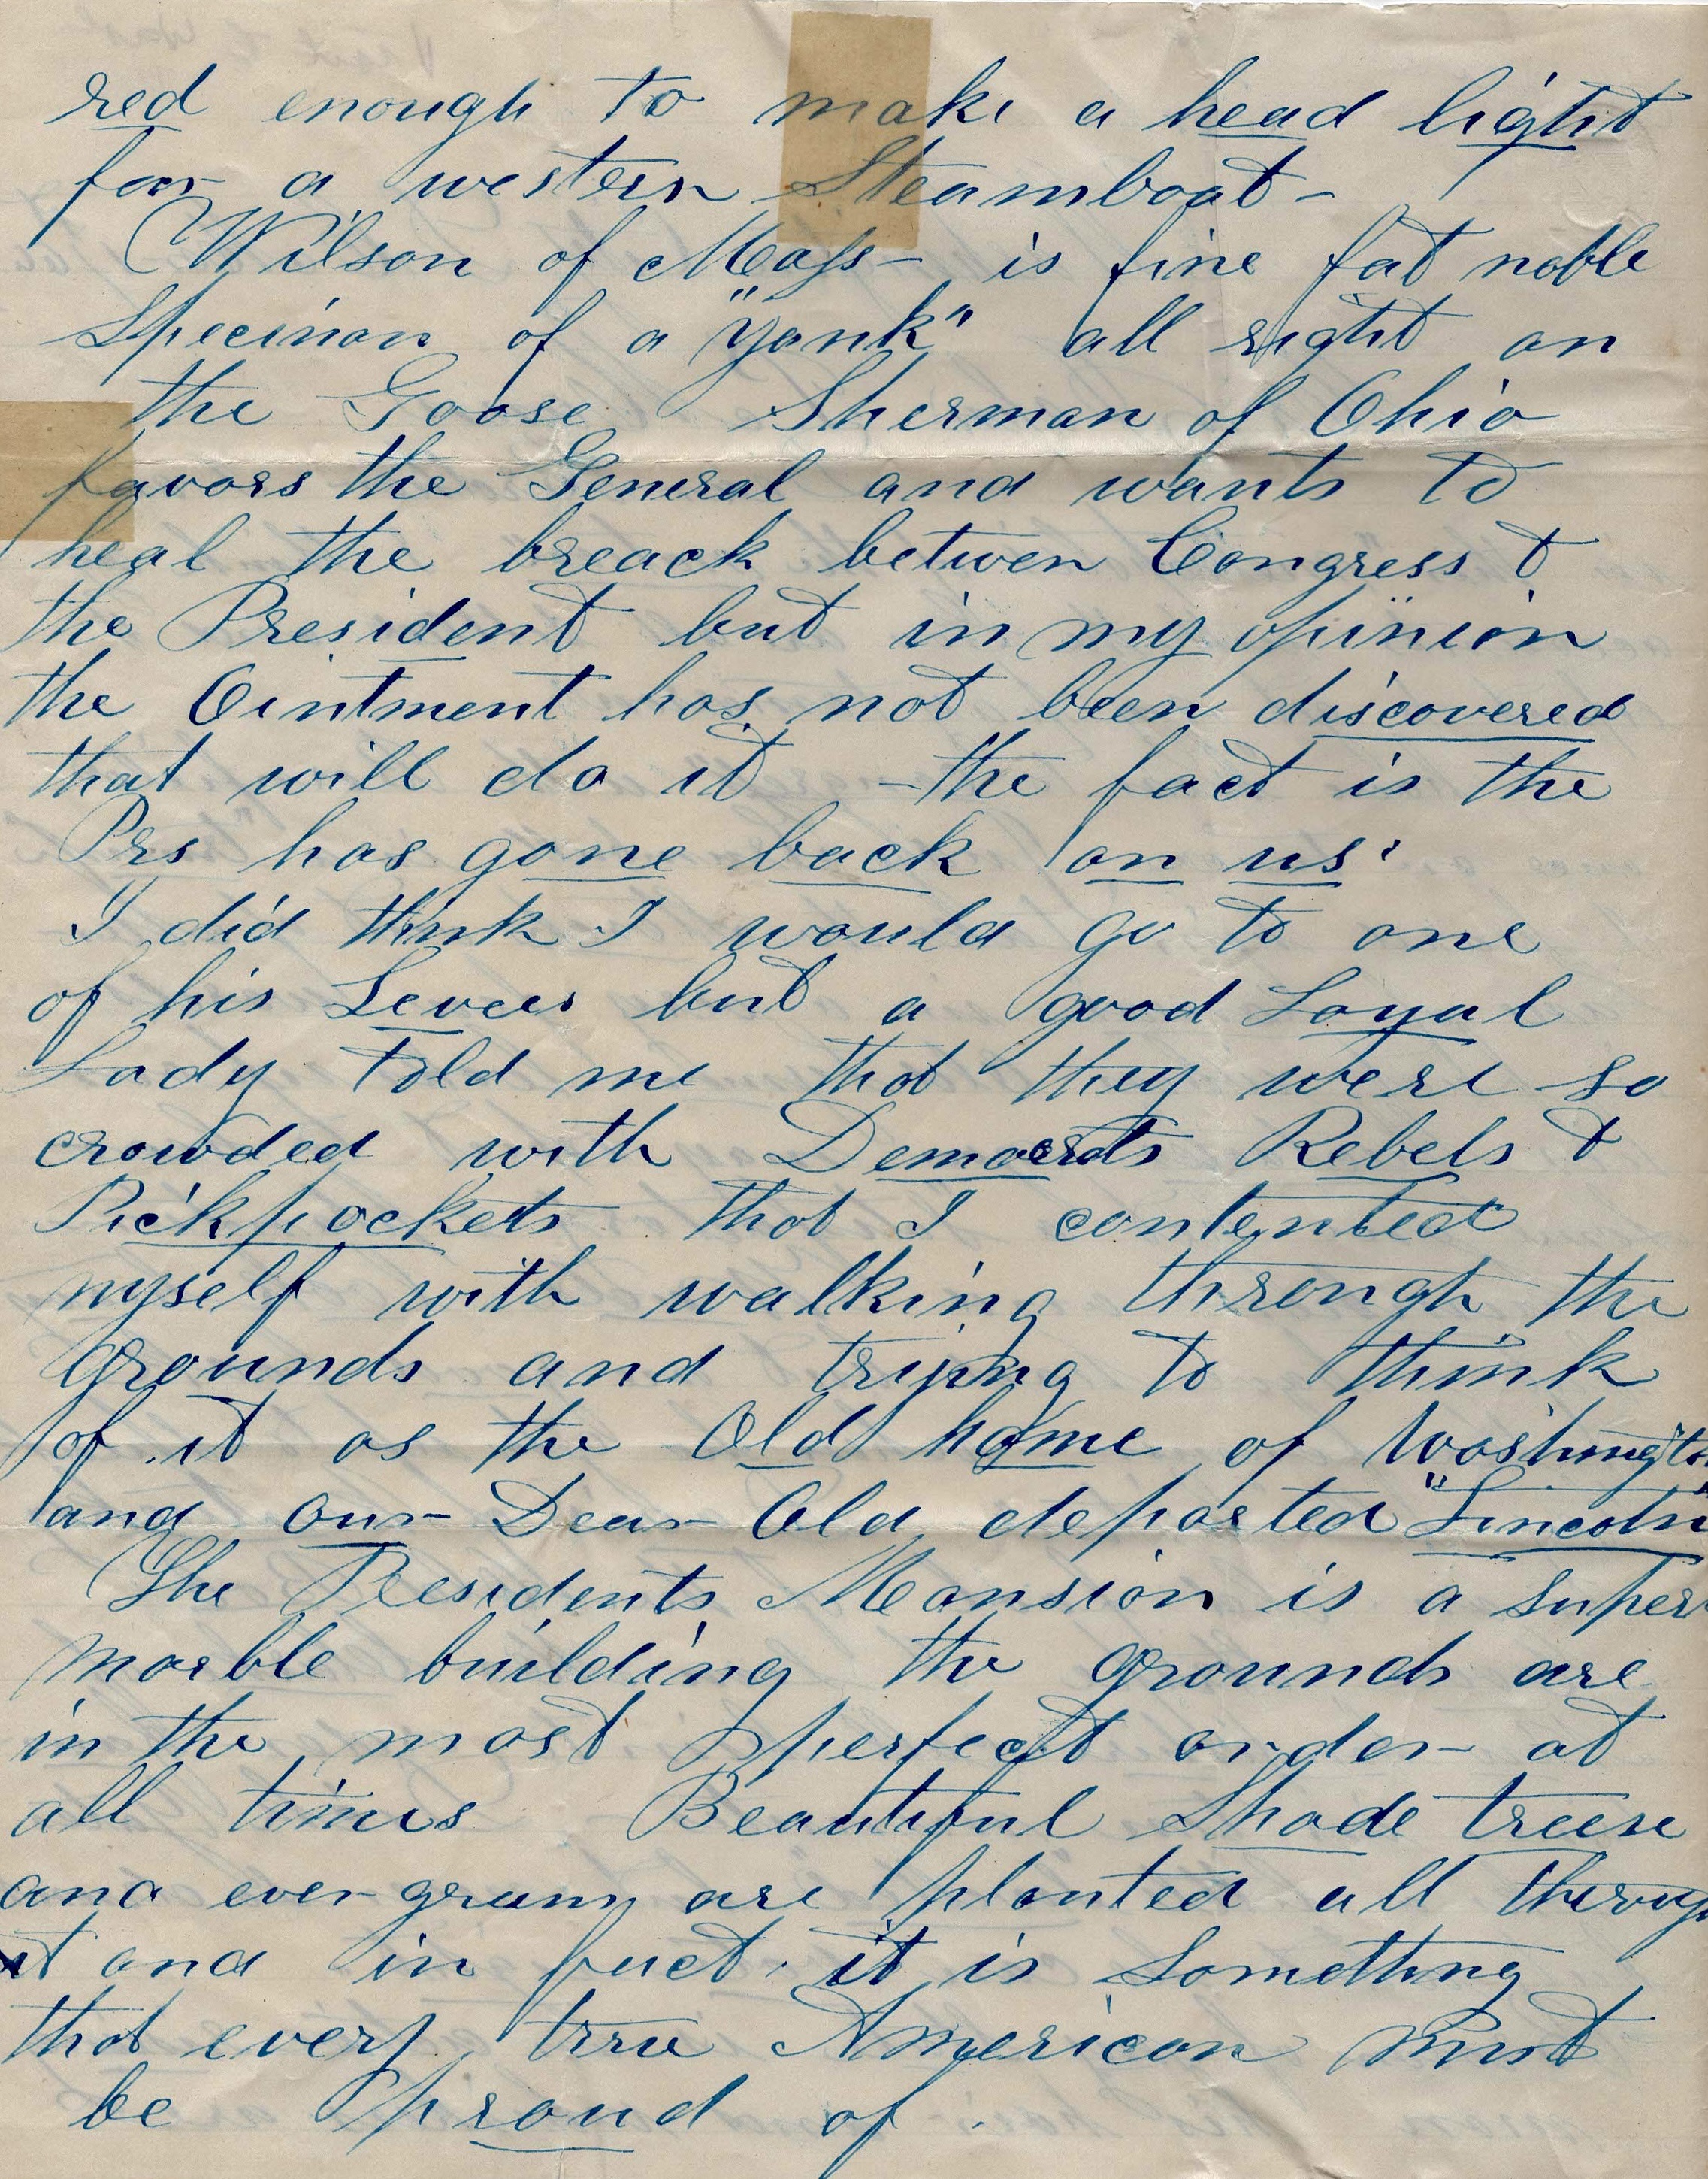 red enough to make a head light
for a western Steamboat -
Wilson of Mass - is fine fat noble
Speciman of a "Yank" all right on
the Goose Sherman of Ohio
favors the General and wants to
heal the breack betwen Congress &
the President but in my opinion
the Ointment has not been discovered
that will do it - the fact is the
Prs has gone back on us.
I did think I would go to one
of his Levees but a good Loyal
Lady told me that they were so
crowded with Demoerats Rebels &
Pickpockets that I contented
myself with walking through the
grounds and trying to think
of it as the Old home of Washington
and our Dear Old departed "Lincoln"
The Presidents Mansion is a super
marble building the grounds are
in the most perfect order at
all times Beautiful Shade treese
and ever greens are planted all throug
it and in fact it is Something
that every true American must
be proud of.